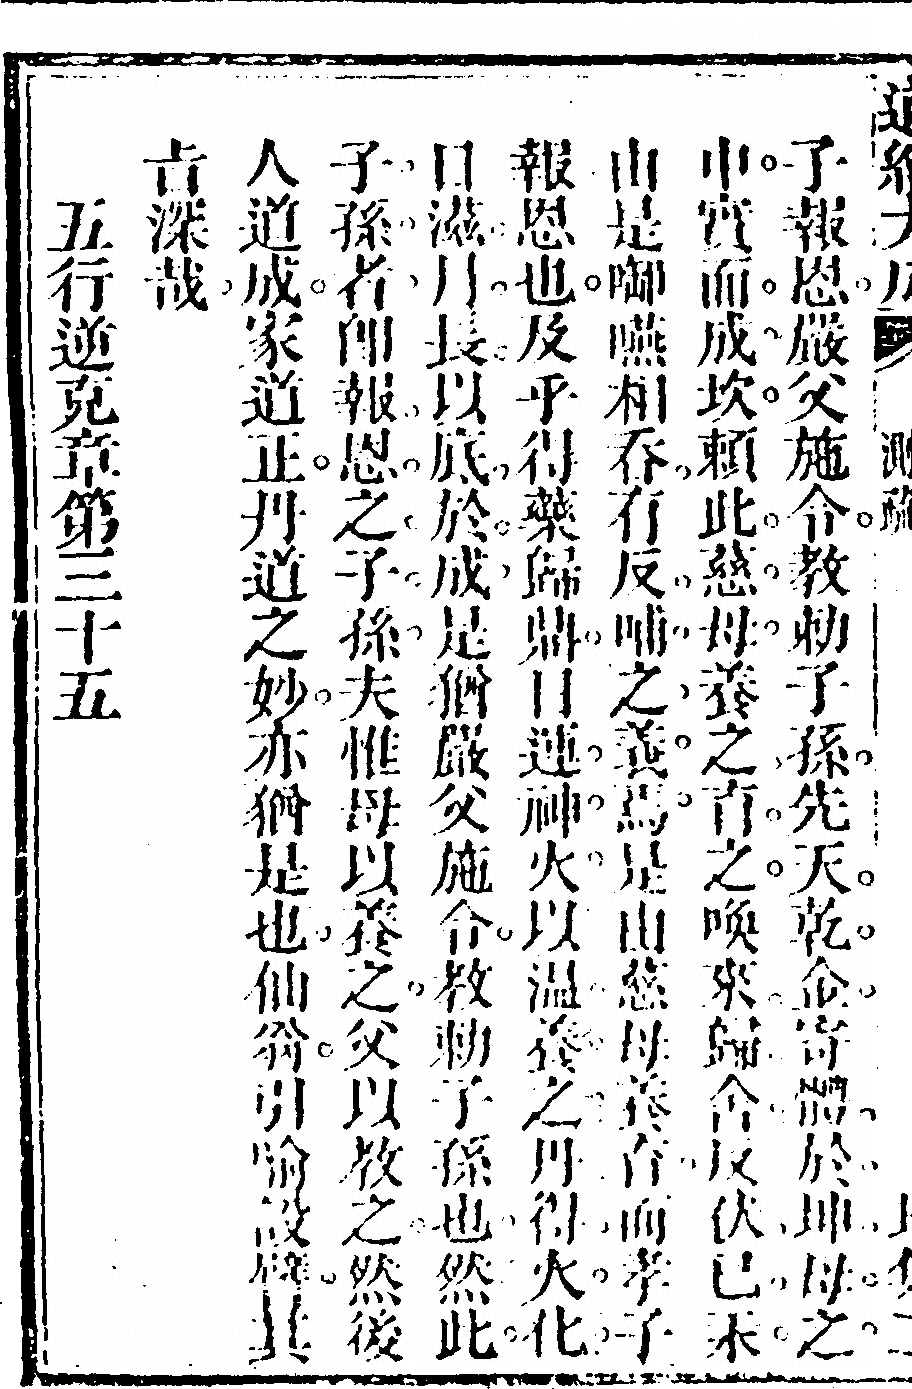 子報恩嚴父施令教勅子孫先天乾金寄體於坤母之
中實而成坎賴此慈母養之育之喚來歸舍反伏已未
由是啣嚥相吞有反哺之義焉是由慈母養育而孝子
報恩也及乎得藥歸鼎日運神火以温養之丹得火化
日滋月長以底於成是猶嚴父施令教勅子孫也然此
子孫者卽報恩之子孫夫惟母以養之父以教之然後
人道成家道正丹道之妙亦猶是也仙翁引喻設譬其
古深哉
五行逆克章第三十五